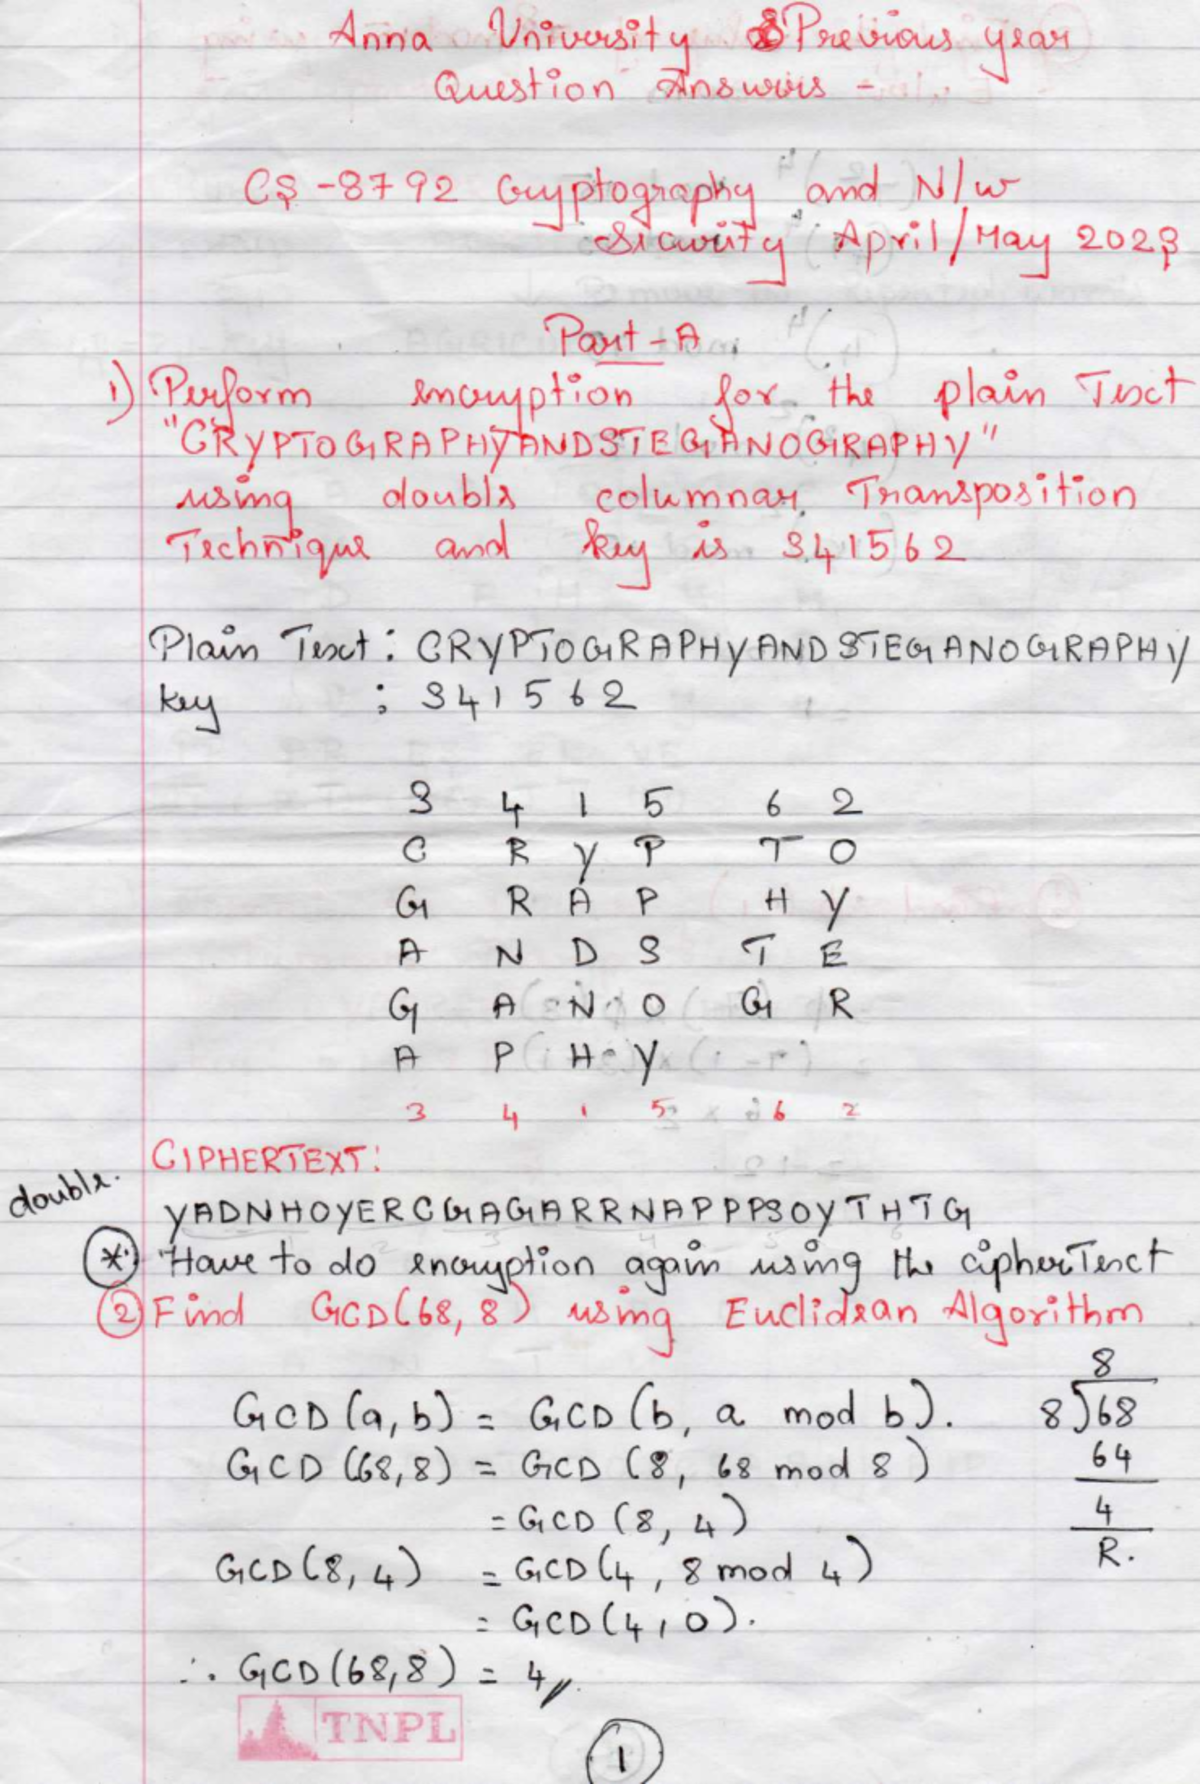 Anna University Previous year
Question Answers -
CS-8792 Cryptography and N/w
Security April/May 2023
Part-A
1) Perform encryption for the plain Text
"CRYPTOGRAPHYANDSTEGANOGRAPHY"
using double columnar Transposition
Technique and key is 341562
Plain Text : CRYPTOGRAPHYANDSTEGANOGRAPHY
key : 341562
3 4 1 5 6 2
C R Y P T O
G R A P H Y
A N D S T E
G A N O G R
A P H Y
3 4 1 5 6 2
CIPHERTEXT:
double.
YADNHOYERCGAGARRNAPPPSOYTHTG
* Have to do encryption again using the cipherText
2 Find GCD(68,8) using Euclidean Algorithm
8
GCD(a,b) = GCD(b, a mod b). 8)68
GCD(68,8) = GCD(8, 68 mod 8) 64
= GCD(8,4) 4
GCD(8,4) = GCD(4, 8 mod 4) R.
= GCD(4,0).
∴ GCD(68,8) = 4//
TNPL
1